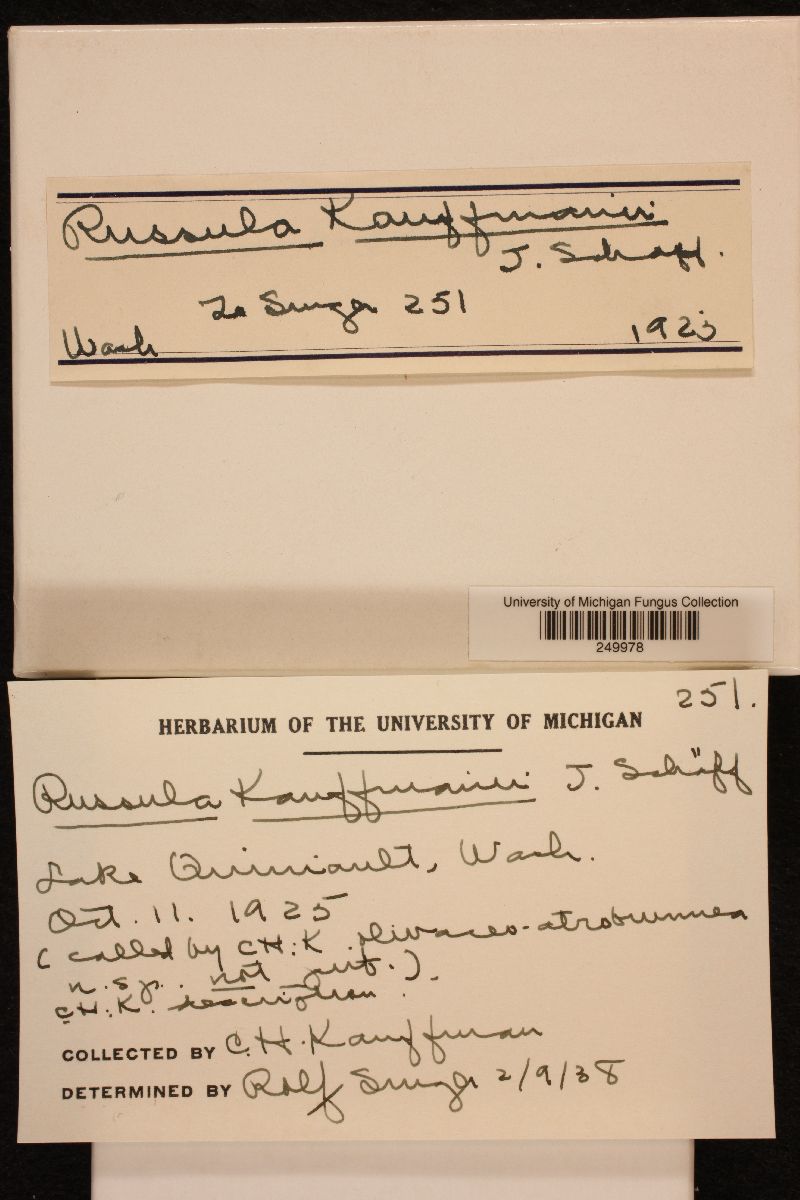 Russula Kauffmanii
J. Schaff.
To Singer 251
Wash 1925
University of Michigan Fungus Collection
249978
251.
HERBARIUM OF THE UNIVERSITY OF MICHIGAN
Russula Kauffmanii J. Schäff
Lake Quiniault, Wash.
Oct. 11. 1925
( called by CH.K. olivaceo-atrobrunnea
n. sp. not pub.).
CH.K. description.
COLLECTED BY C.H. Kauffman
DETERMINED BY Rolf Singer 2/9/38